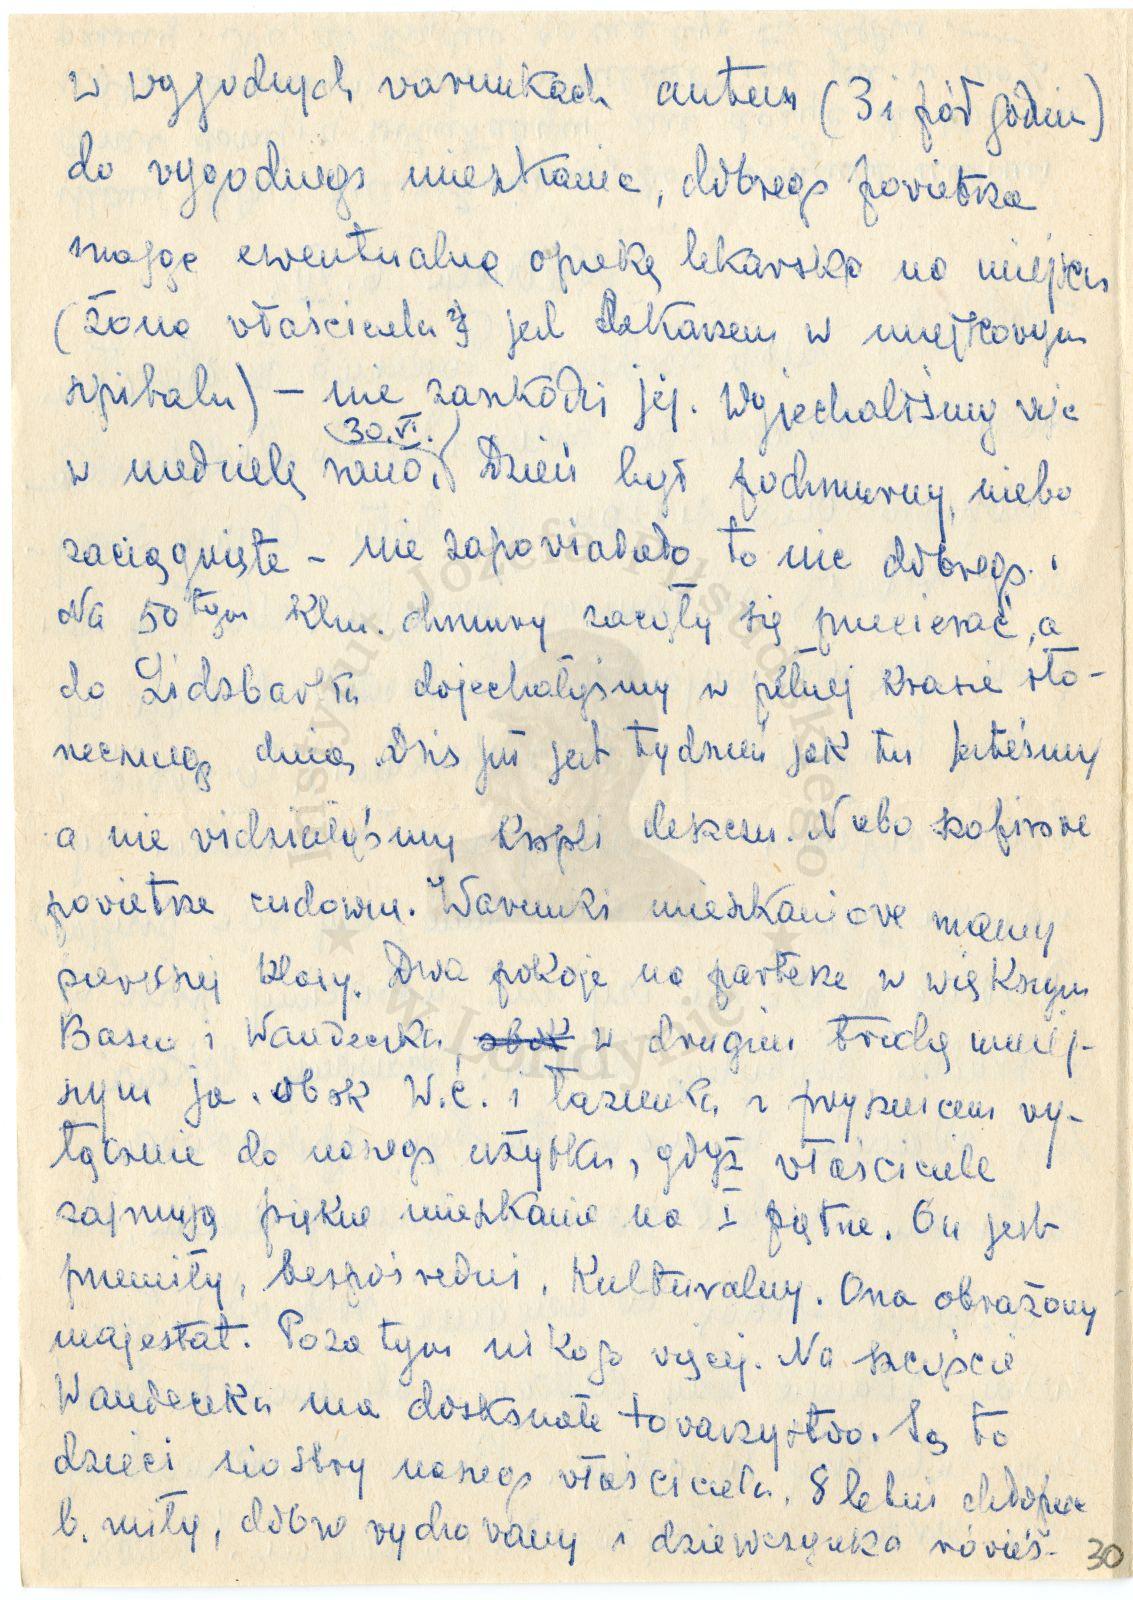 w wygodnych warunkach autem (3 i pół godzin)
do wygodnego mieszkania, dobrego powietrza
mając ewentualną opiekę lekarską na miejscu
(żona właściciela jest lekarzem w miejscowym
szpitalu) – nie zaszkodzi jej. Wyjechaliśmy więc
(30.VI.)
w niedzielę rano. Dzień był pochmurny, niebo
zaciągnięte – nie zapowiadało to nic dobrego.
Na 50tym klm. chmury zaczęły się przecierać, a
do Lidzbarka dojechałyśmy w pełnej krasie sło-
necznego dnia. Dziś już jest tydzień jak tu jesteśmy
a nie widziałyśmy kropli deszczu. Niebo szafirowe
powietrze cudowne. Warunki mieszkaniowe mamy
pierwszej klasy. Dwa pokoje na parterze w większym
Basia i Wandeczka, obok w drugim trochę mniej-
szym ja. Obok W.C. i łazienka z prysznicem wy-
łącznie do naszego użytku, gdyż właściciele
zajmują piękne mieszkanie na I piętrze. On jest
przemiły, bezpośredni, kulturalny. Ona obrażony
majestat. Poza tym nikogo więcej. Na szczęście
Wandeczka ma doskonałe towarzystwo. Są to
dzieci siostry naszego właściciela. 8 letni chłopiec
b. miły, dobrze wychowany i dziewczynka rówieś-
30
Instytut Józefa Piłsudskiego
w Londynie